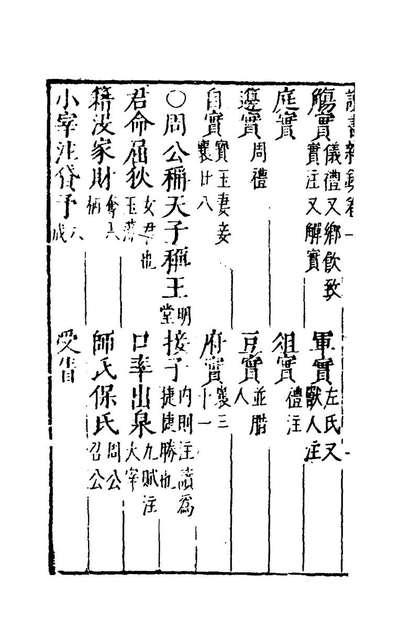 讀書雜鈔卷一
觴實儀禮又鄉飲致實注又解實 軍實左氏又獸人注
庭實 俎實禮注
籩實周禮 豆實並腊人
自實寶玉妻妾襄廿八 府實襄三十一
○周公稱天子稱王明堂 接子內則注讀爲捷捷勝也
君命屈狄女君也玉藻 口率出泉九賦注大宰
籍沒家財奪其柄 師氏保氏周公召公
小宰注貸予 受眚